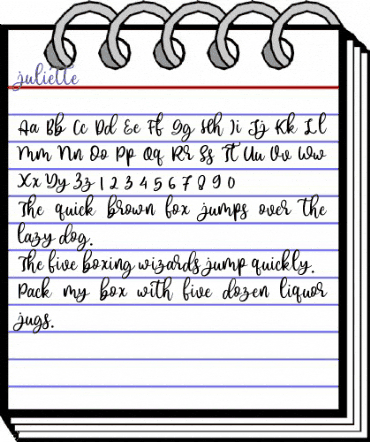 juliette
Aa Bb Cc Dd Ee Ff Gg Hh Ii Jj Kk Ll
Mm Nn Oo Pp Qq Rr Ss Tt Uu Vv Ww
Xx Yy Zz 1 2 3 4 5 6 7 8 9 0
The quick brown fox jumps over the
lazy dog.
The five boxing wizards jump quickly.
Pack my box with five dozen liquor
jugs.